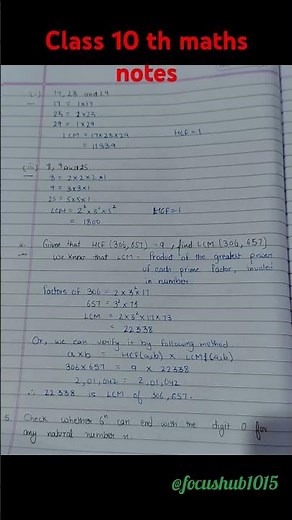 Class 10 th maths
notes
(ii) 17, 23 and 29
17 = 1×17
23 = 2×23
29 = 1×29
LCM = 17×23×29 HCF = 1
= 11339
(iii) 8, 9 and 25
8 = 2×2×2×1
9 = 3×3×1
25 = 5×5×1
LCM = 2³×3²×5² HCF = 1
= 1800
4. Given that HCF (306, 657) = 9, find LCM (306, 657)
We know that LCM = Product of the greatest power
of each prime factor, involved
in number
Factors of 306 = 2×3²×17
657 = 3²×73
LCM = 2×3²×17×73
= 22338
Or, we can verify it by following method
a×b = HCF(a,b) × LCM(a,b)
306×657 = 9 × 22338
2,01,042 = 2,01,042
∴ 22338 is LCM of 306, 657.
5. Check whether 6ⁿ can end with the digit 0 for
any natural number n.
@focushub1015